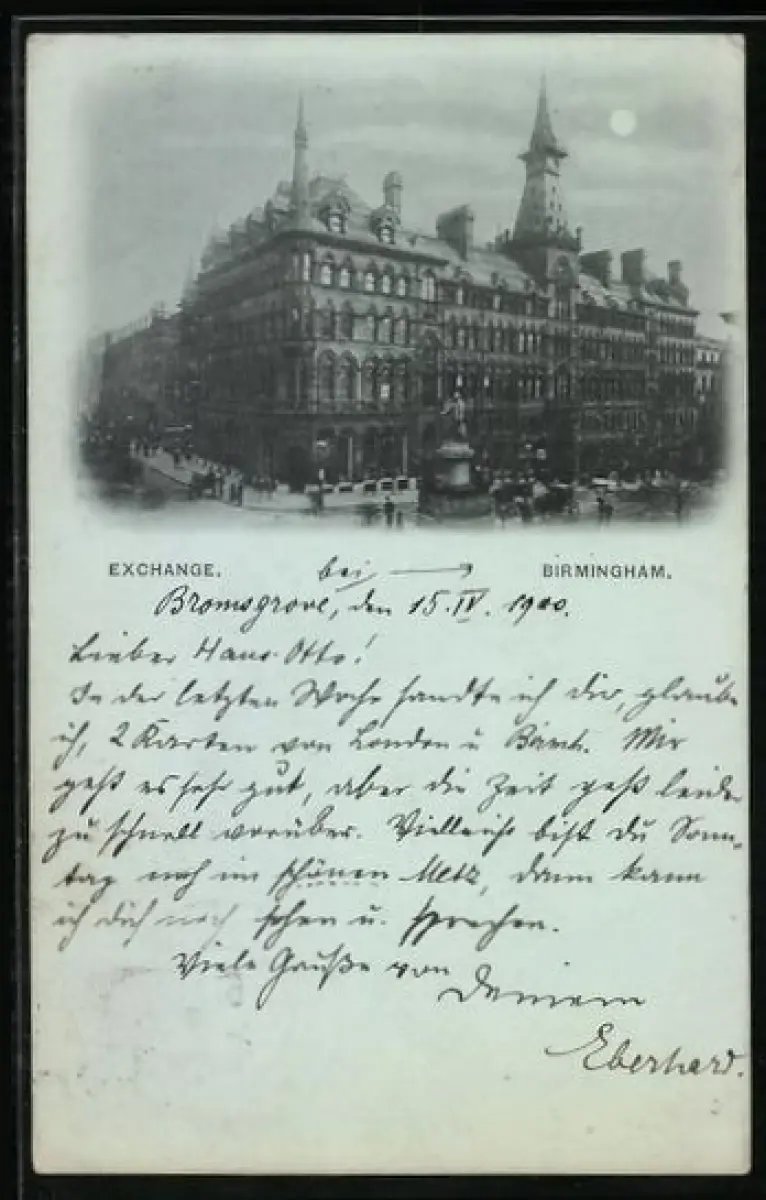 EXCHANGE. bei → BIRMINGHAM.
Bromsgrove, den 15.IV. 1900.
Lieber Hans-Otto!
In der letzten Woche sandte ich dir, glaube
ich, 2 Karten von London u. Birmh. Mir
geht es sehr gut, aber die Zeit geht leider
zu schnell vorüber. Vielleicht bist du Sonn-
tag noch im schönen Metz, dann kann
ich dich noch sehen u. sprechen.
Viele Grüße von
Deinem
Eberhard.